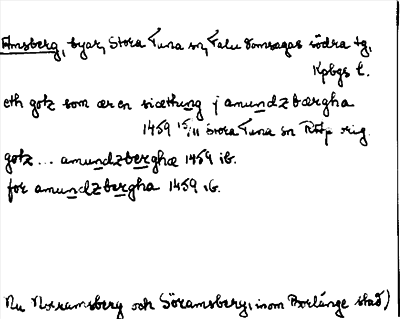 Amsberg, byar, Stora Tuna sn, Falu domsagas södra tg,
Kpbgs l.
eth gotz som ær en siæthung j amundzbærgha
1459 15/11 Stora Tuna sn RAp orig.
gotz... amundzberghæ 1459 ib.
for amundzbergha 1459 ib.
Nu Norramsberg och Söramsberg, inom Borlänge stad)